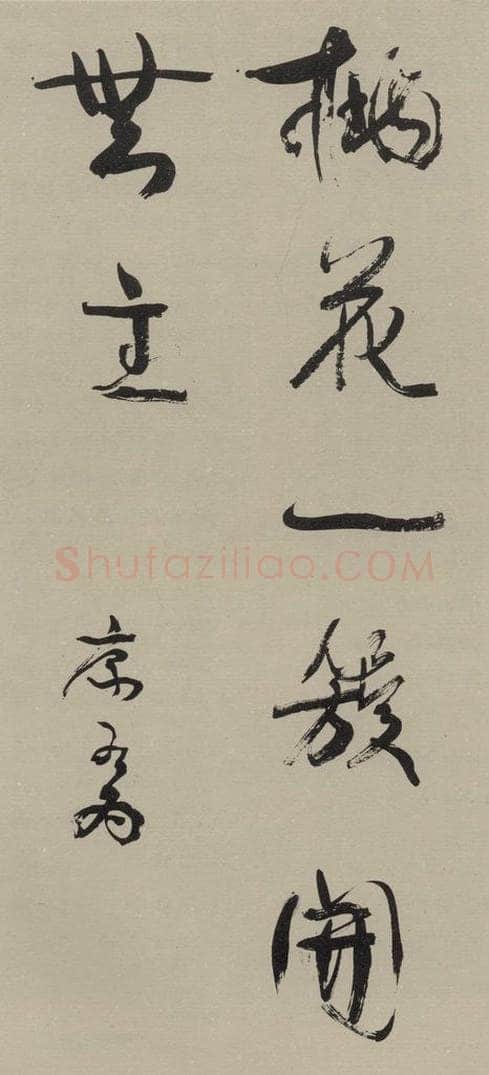 桃花一簇開
無主
康有為
Shufaziliao.COM